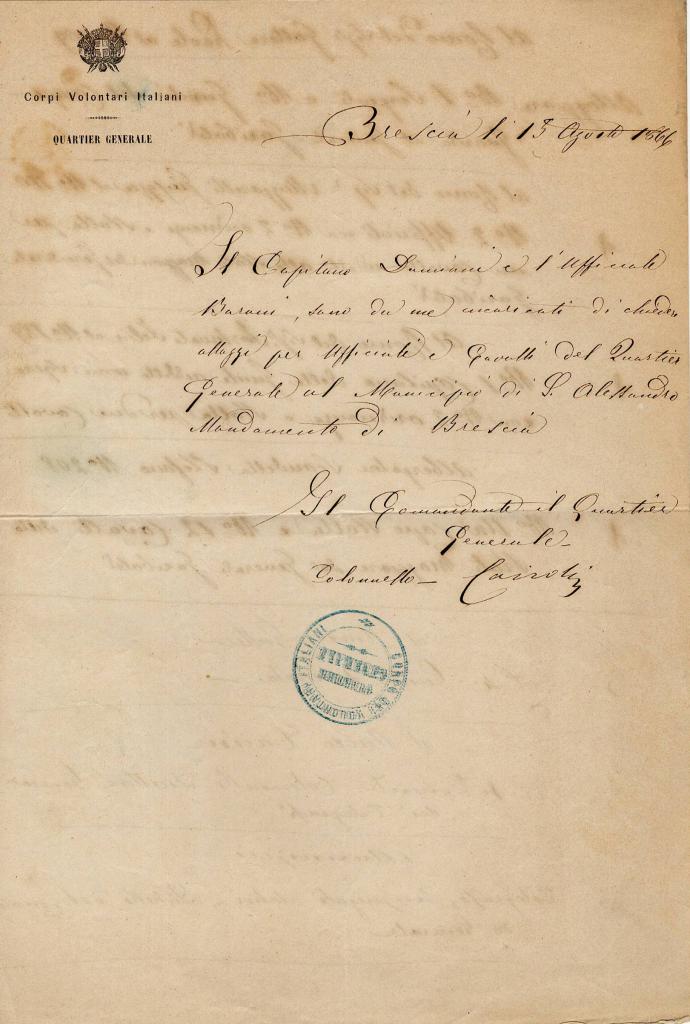 Corpi Volontari Italiani
QUARTIER GENERALE
Brescia li 13 Agosto 1866
Il Capitano Damiani e l'Ufficiale
Baroni, sono da me incaricati di chieder
alloggi per Ufficiali e Cavalli del Quartier
Generale al Municipio di S. Alessandro
Mandamento di Brescia
Il Comandante il Quartier
Generale
Colonnello Cairoli
CORPO DEI VOLONTARI ITALIANI